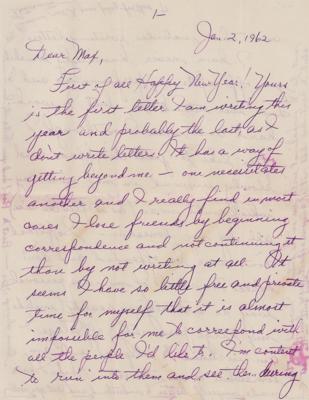 1-
Jan. 2, 1962
Dear Max,
First of all Happy New Year! Yours
is the first letter I am writing this
year and probably the last, as I
don't write letters. It has a way of
getting beyond me — one necessitates
another and I really find in most
cases I lose friends by beginning
correspondence and not continuing it
than by not writing at all. It
seems I have so little free and private
time for myself that it is almost
impossible for me to correspond with
all the people I'd like to. I'm content
to run into them and see them during